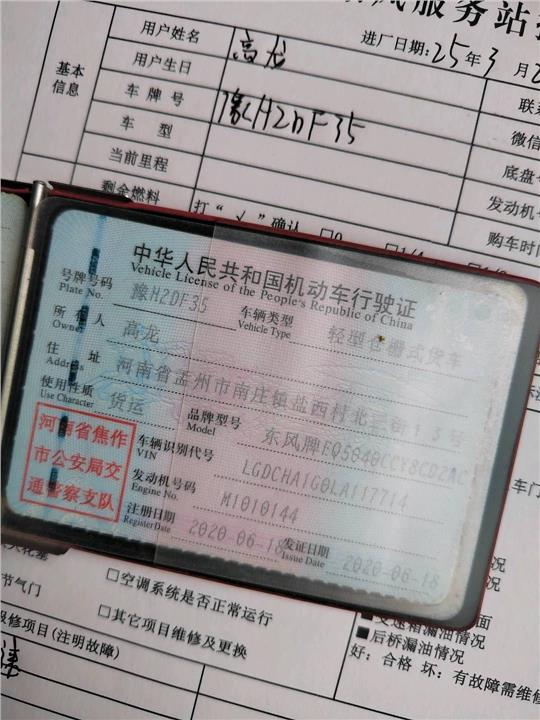 服务站
进厂日期: 25年3月
基本信息
用户姓名 高龙
用户生日
车牌号 豫H2DF35
车型
当前里程
剩余燃料 打“√”确认
微信
底盘
发动机
购车时间
中华人民共和国机动车行驶证
Vehicle License of the People's Republic of China
号牌号码 豫H2DF35 车辆类型 轻型仓栅式货车
Plate No. Vehicle Type
所有人 高龙
Owner
住址 河南省孟州市南庄镇盐西村北
Address
使用性质 货运 品牌型号 东风牌EQ5040CCY8CD2AC
Use Character Model
河南省焦作市公安局交通警察支队
车辆识别代号 LGDCHA1G0LA117714
VIN
发动机号码 M1010144
Engine No.
注册日期 2020-06-18 发证日期 2020-06-18
Register Date Issue Date
车门
节气门
□空调系统是否正常运行
□其它项目维修及更换
报修项目(注明故障)
■变速箱漏油情况
■后桥漏油情况
好: 合格 坏: 有故障需维修